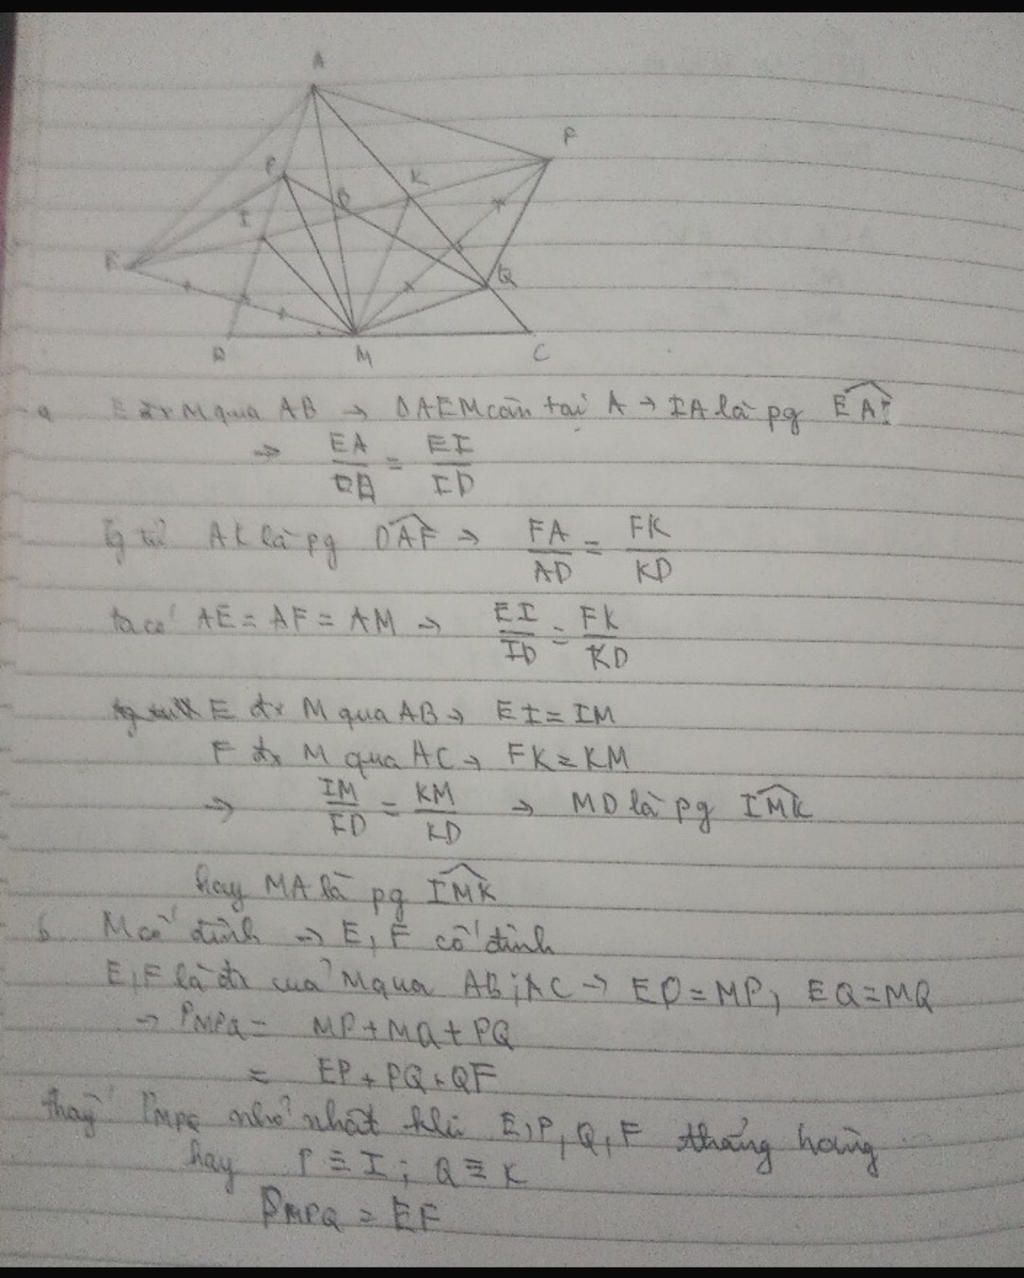 A
F
P
K
I
E
Q
M
C
a E đx M qua AB → ΔAEM cân tại A → IA là pg
⇒ EA = EI
ID
tg tự AK là pg DAF ⇒ FA = FK
AD KD
ta có AE = AF = AM → EI = FK
ID KD
E đx M qua AB → EI = IM
F đx M qua AC → FK = KM
⇒ IM = KM → MD là pg IMK
ID KD
hay MA là pg IMK
b M cố định → E, F cố định
E, F là đx của M qua AB; AC → EP = MP, EQ = MQ
→ PMPQ = MP + MQ + PQ
= EP + PQ + QF
thấy PMPQ nhỏ nhất khi E, P, Q, F thẳng hàng
hay P ≡ I; Q ≡ K
PMPQ = EF